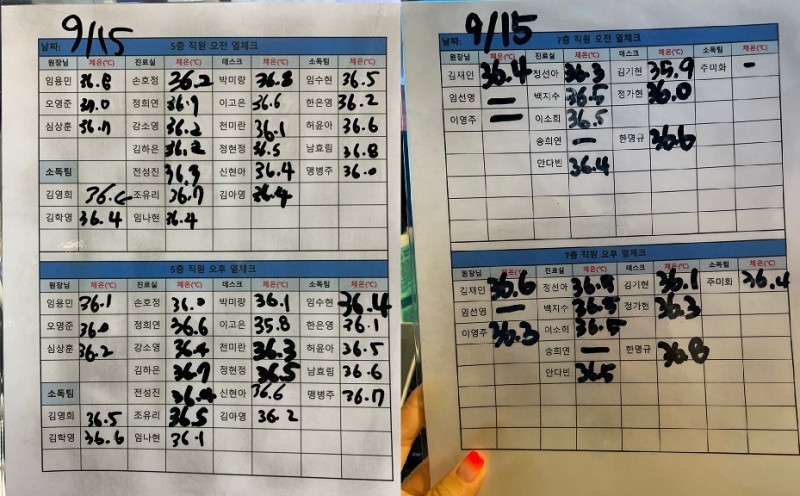 날짜: 9/15
5층 직원 오전 열체크
원장님 체온(℃) 진료실 체온(℃) 데스크 체온(℃) 소독팀 체온(℃)
임용민 36.8 손호정 36.2 박미량 36.8 임수현 36.5
오영준 37.0 정희연 36.7 이고은 36.6 한은영 36.2
심상훈 36.7 강소영 36.2 천미란 36.1 허윤아 36.6
김하은 36.2 정현정 36.5 남효림 36.8
소독팀 전성진 36.3 신현아 36.4 맹병주 36.0
김영희 조유리 36.7 김아영 36.4
김학영 36.4 임나현 36.4
5층 직원 오후 열체크
원장님 체온(℃) 진료실 체온(℃) 데스크 체온(℃) 소독팀 체온(℃)
임용민 36.1 손호정 36.0 박미량 36.1 임수현 36.4
오영준 36.0 정희연 36.6 이고은 35.8 한은영 36.1
심상훈 36.2 강소영 36.4 천미란 36.3 허윤아 36.5
김하은 36.7 정현정 36.5 남효림 36.6
소독팀 전성진 36.4 신현아 36.6 맹병주 36.7
김영희 36.5 조유리 36.5 김아영 36.2
김학영 36.6 임나현 36.1
날짜: 9/15
7층 직원 오전 열체크
원장님 체온(℃) 진료실 체온(℃) 데스크 체온(℃) 소독팀 체온(℃)
김재인 36.4 정선아 36.3 김기현 35.9 주미화 -
임선영 - 백지수 36.5 정가현 36.0
이영주 - 이소희 36.5
송희연 - 한명규 36.6
안다빈 36.4
7층 직원 오후 열체크
원장님 체온(℃) 진료실 체온(℃) 데스크 체온(℃) 소독팀 체온(℃)
김재인 36.6 정선아 36.5 김기현 36.1 주미화 36.4
임선영 - 백지수 36.5 정가현 36.3
이영주 36.3 이소희 36.5
송희연 - 한명규 36.8
안다빈 36.5